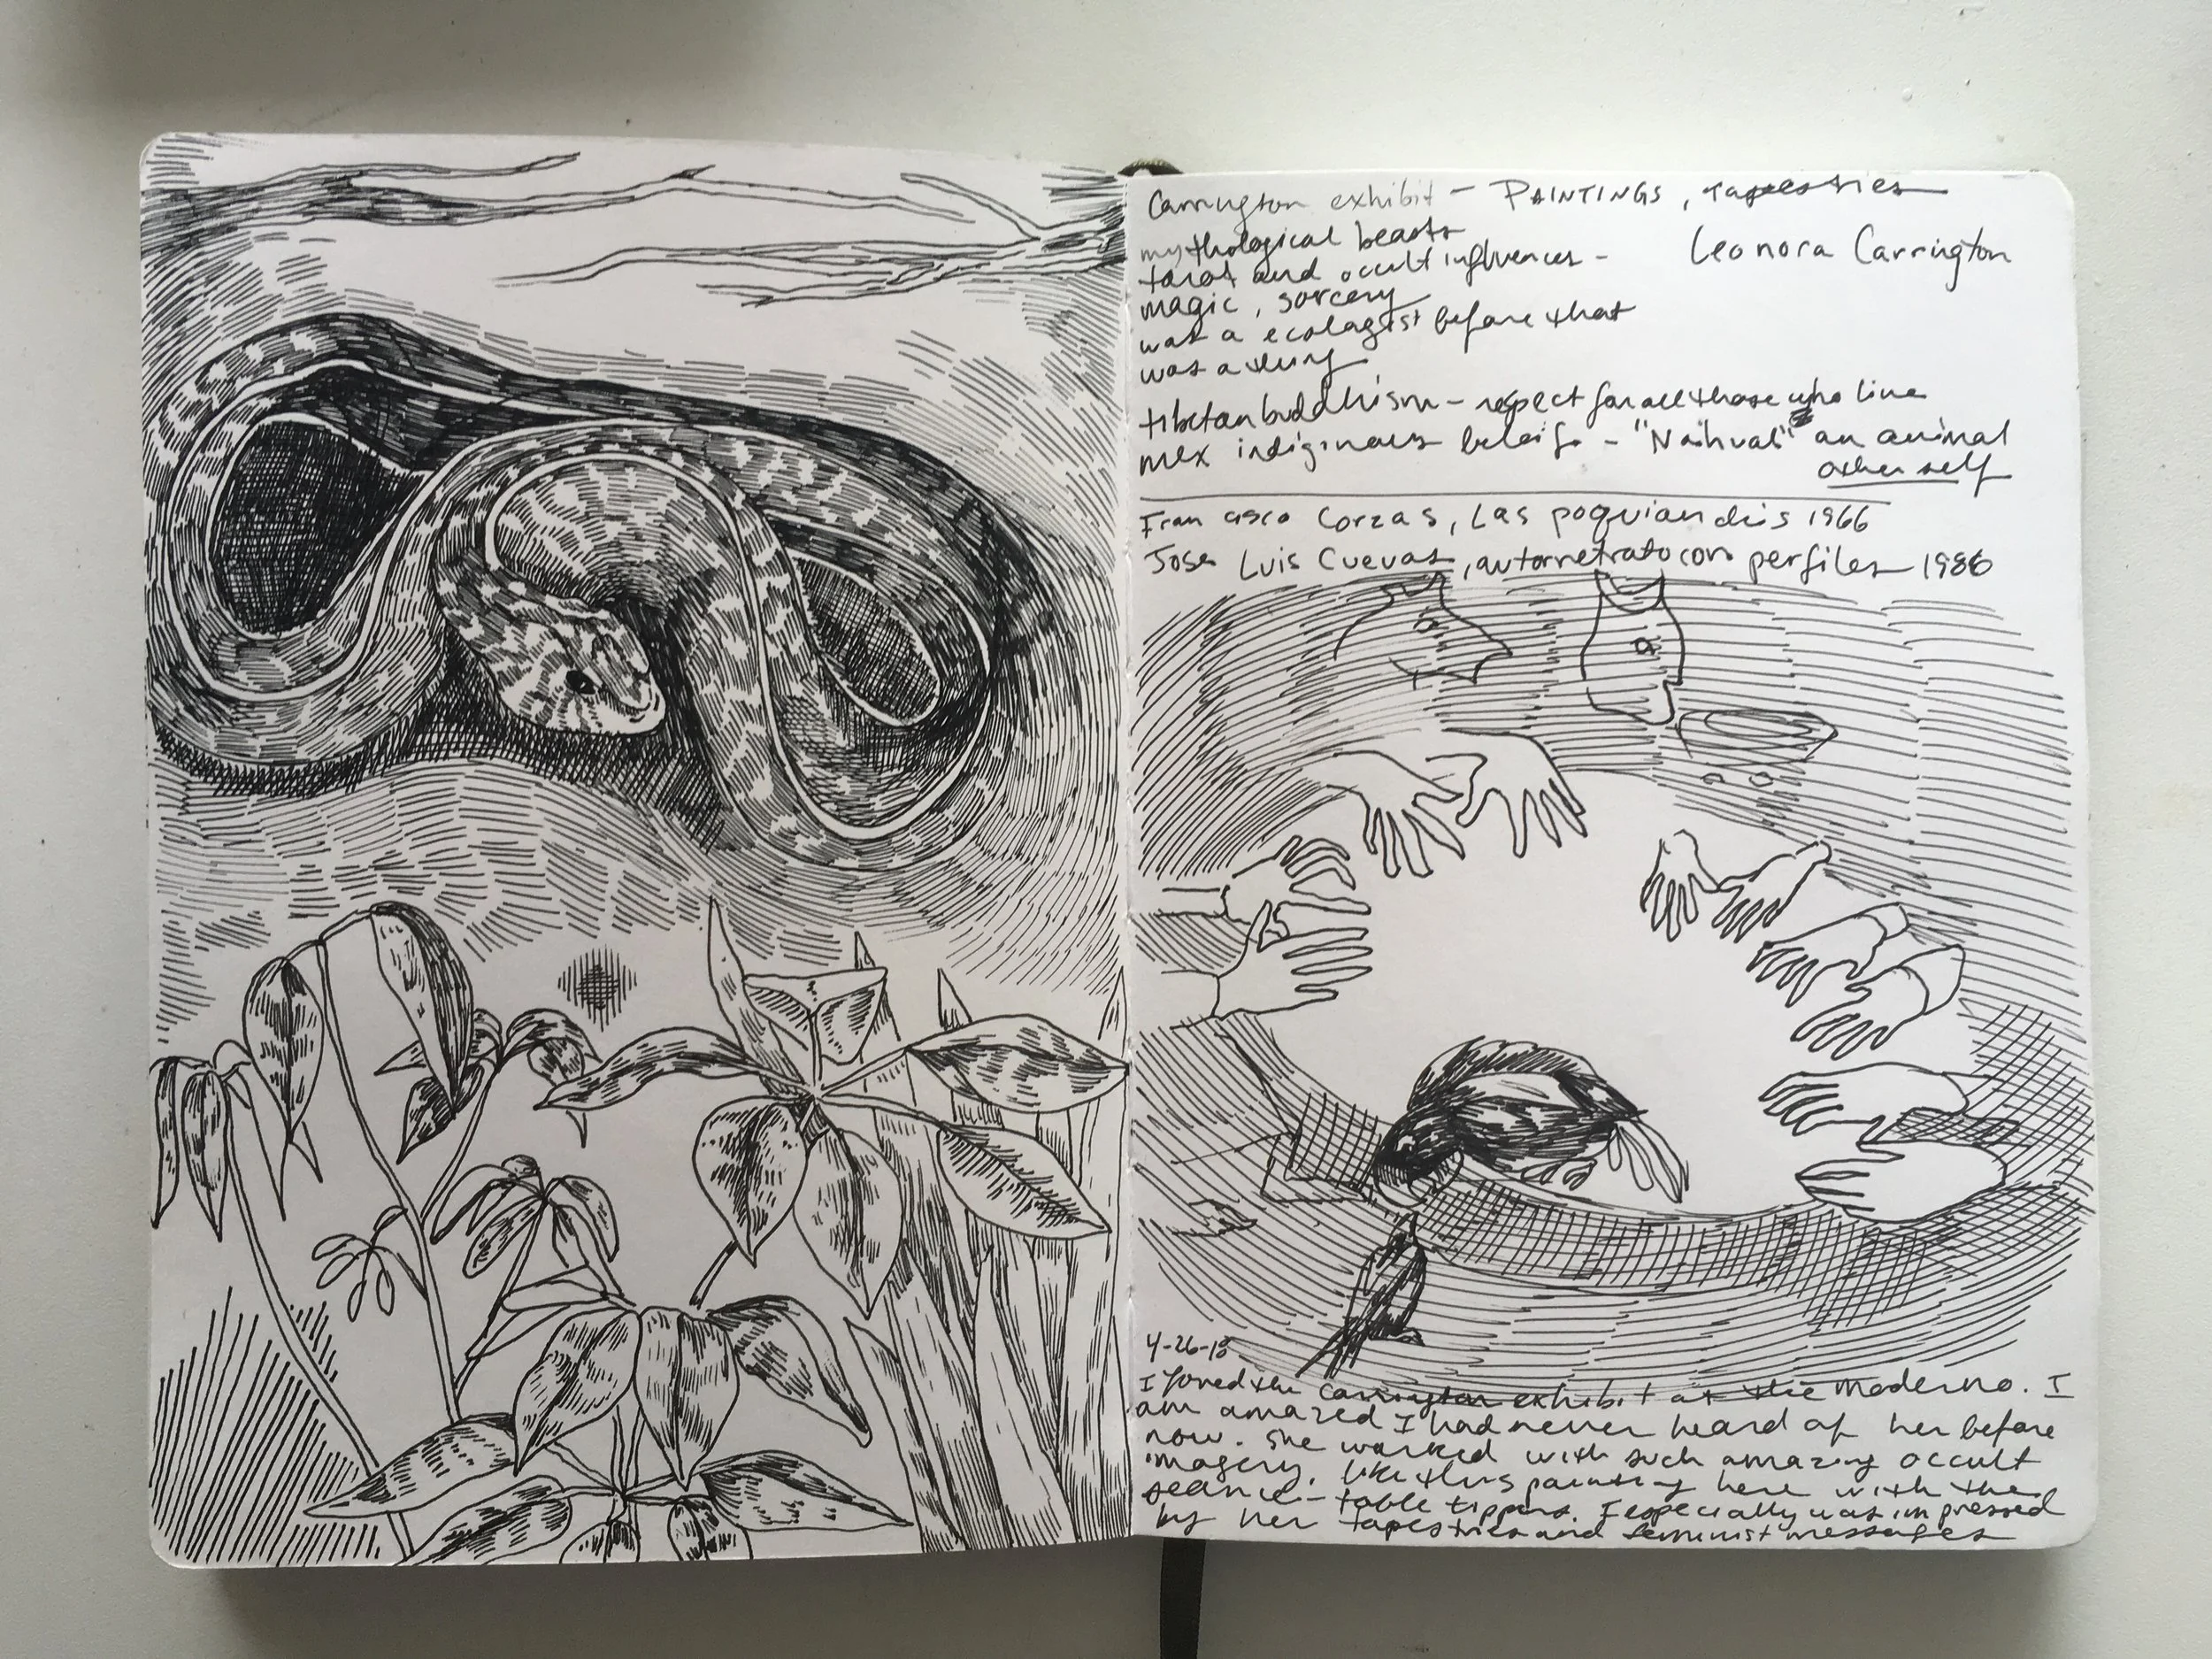 Carrington exhibit - PAINTINGS, tapestries
mythological beasts
Leonora Carrington
tarot and occult influences -
magic, sorcery
was a ecologist before that
was a thing
tibetan buddhism - repect for all those who live
mex indiginous beleifs - "Nahual" an animal
other self
Francisco Corzas, Las poquianchis 1966
Jose Luis Cuevas, autorretrato con perfiles 1986
4-26-18
I loved the Carrington exhibit at the Moderno. I
am amazed I had never heard of her before
now. She worked with such amazing occult
imagery, like this painting here with the
seance-table tippers. I especially was impressed
by her tapestries and feminist messages